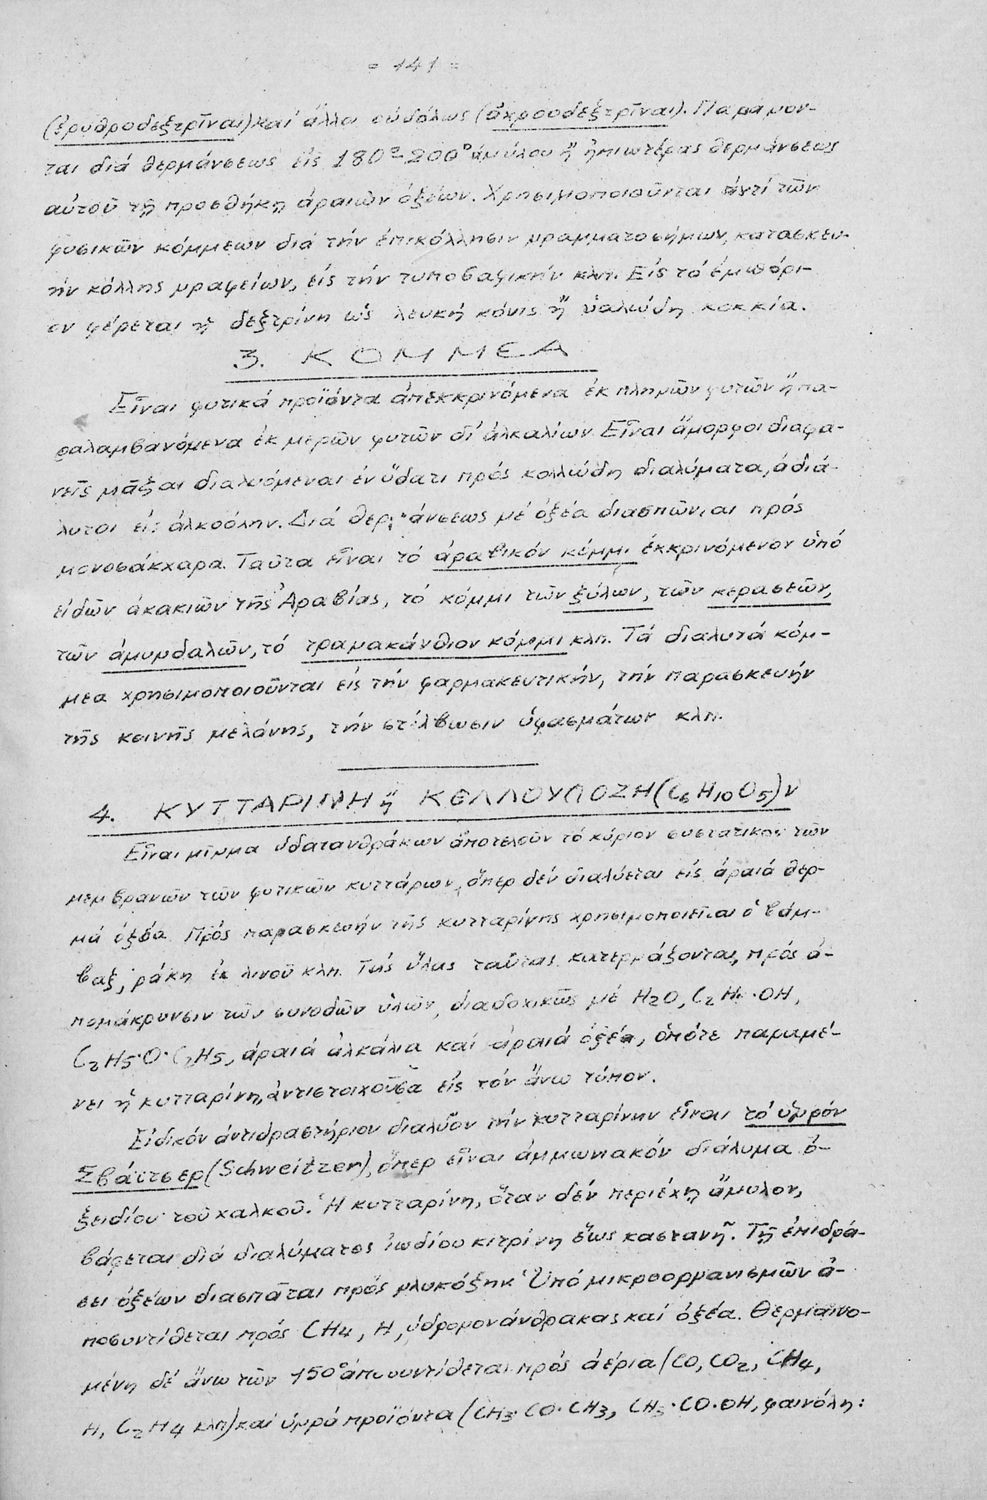 = 141 =
(ἐρυθροδεξτρῖναι) καί ἄλλαι οὐδόλως (ἀχροοδεξτρῖναι). Παράγον-
ται διά θερμάνσεως εἰς 180°-200° ἀμύλου ἤ ἠπιωτέρας θερμάνσεως
αὐτοῦ τῇ προσθήκῃ ἀραιῶν ὀξέων. Χρησιμοποιοῦνται ἀντί τῶν
φυσικῶν κόμμεων διά τήν ἐπικόλλησιν γραμματοσήμων, κατασκευ-
ήν κόλλης γραφείων, εἰς τήν τυποβαφικήν κλπ. Εἰς τό ἐμπόρι-
ον φέρεται ἡ δεξτρίνη ὡς λευκή κόνις ἤ ὑαλώδη κοκκία.
3. ΚΟΜΜΕΑ
Εἶναι φυτικά προϊόντα ἀπεκκρινόμενα ἐκ πληγῶν φυτῶν ἤ πα-
ραλαμβανόμενα ἐκ μερῶν φυτῶν δι' ἀλκαλίων. Εἶναι ἄμορφοι διαφα-
νεῖς μᾶζαι διαλυόμεναι ἐν ὕδατι πρός κολλώδη διαλύματα, ἀδιά-
λυτοι εἰς ἀλκοόλην. Διά θερμάνσεως μέ ὀξέα διασπῶνται πρός
μονοσάκχαρα. Ταῦτα εἶναι τό ἀραβικόν κόμμι ἐκκρινόμενον ὑπό
εἰδῶν ἀκακιῶν τῆς Ἀραβίας, τό κόμμι τῶν ξύλων, τῶν κερασεῶν,
τῶν ἀμυγδαλῶν, τό τραγακάνθιον κόμμι κλπ. Τά διαλυτά κόμ-
μεα χρησιμοποιοῦνται εἰς τήν φαρμακευτικήν, τήν παρασκευήν
τῆς κοινῆς μελάνης, τήν στίλβωσιν ὑφασμάτων κλπ.
4. ΚΥΤΤΑΡΙΝΗ ἤ ΚΕΛΛΟΥΛΟΖΗ (C6H10O5)ν
Εἶναι μῖγμα ὑδατανθράκων ἀποτελοῦν τό κύριον συστατικόν τῶν
μεμβρανῶν τῶν φυτικῶν κυττάρων, ὅπερ δέν διαλύεται εἰς ἀραιά θερ-
μά ὀξέα. Πρός παρασκευήν τῆς κυτταρίνης χρησιμοποιεῖται ὁ βάμ-
βαξ, ράκη ἐκ λινοῦ κλπ. Τάς ὕλας ταύτας κατεργάζονται, πρός ἀ-
πομάκρυνσιν τῶν συνοδῶν ὑλῶν, διαδοχικῶς μέ H2O, C2H5·OH,
C2H5·O·C2H5, ἀραιά ἀλκάλια καί ἀραιά ὀξέα, ὁπότε παραμέ-
νει ἡ κυτταρίνη, ἀντιστοιχοῦσα εἰς τόν ἄνω τύπον.
Εἰδικόν ἀντιδραστήριον διαλῦον τήν κυτταρίνην εἶναι τό ὑγρόν
Σβάιτσερ (Schweitzer), ὅπερ εἶναι ἀμμωνιακόν διάλυμα ὀ-
ξειδίου τοῦ χαλκοῦ. Ἡ κυτταρίνη, ὅταν δέν περιέχῃ ἄμυλον,
βάφεται διά διαλύματος ἰωδίου κιτρίνη ἕως καστανῆ. Τῇ ἐπιδρά-
σει ὀξέων διασπᾶται πρός γλυκόζην. Ὑπό μικροοργανισμῶν ἀ-
ποσυντίθεται πρός CH4, H, ὑδρογονάνθρακας καί ὀξέα. Θερμαινο-
μένη δέ ἄνω τῶν 150° ἀποσυντίθεται πρός ἀέρια (CO, CO2, CH4,
H, C2H4 κλπ) καί ὑγρά προϊόντα (CH3·CO·CH3, CH3·CO·OH, φαινόλη: